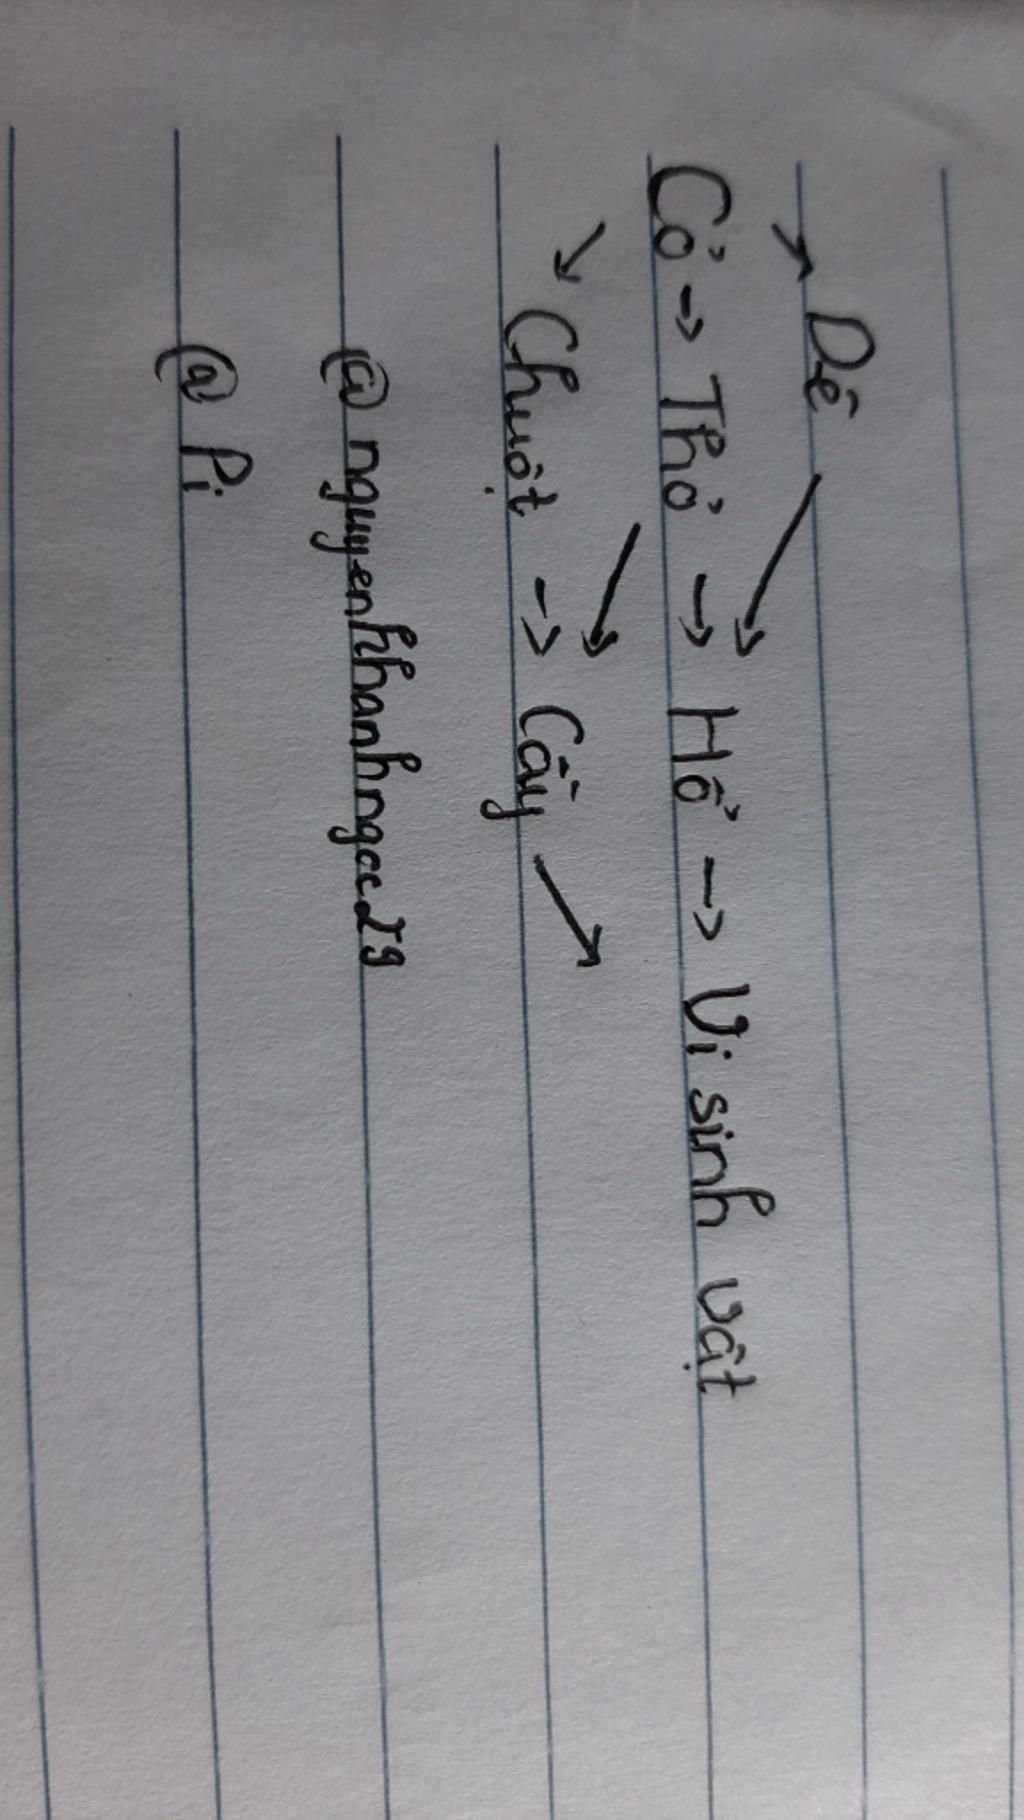 ↗ Dê ↘
Cỏ → Thỏ → Hổ → Vi sinh vật
↘ ↘
Chuột → Cầy ↗
@nguyenhhanhngcc29
@Pi